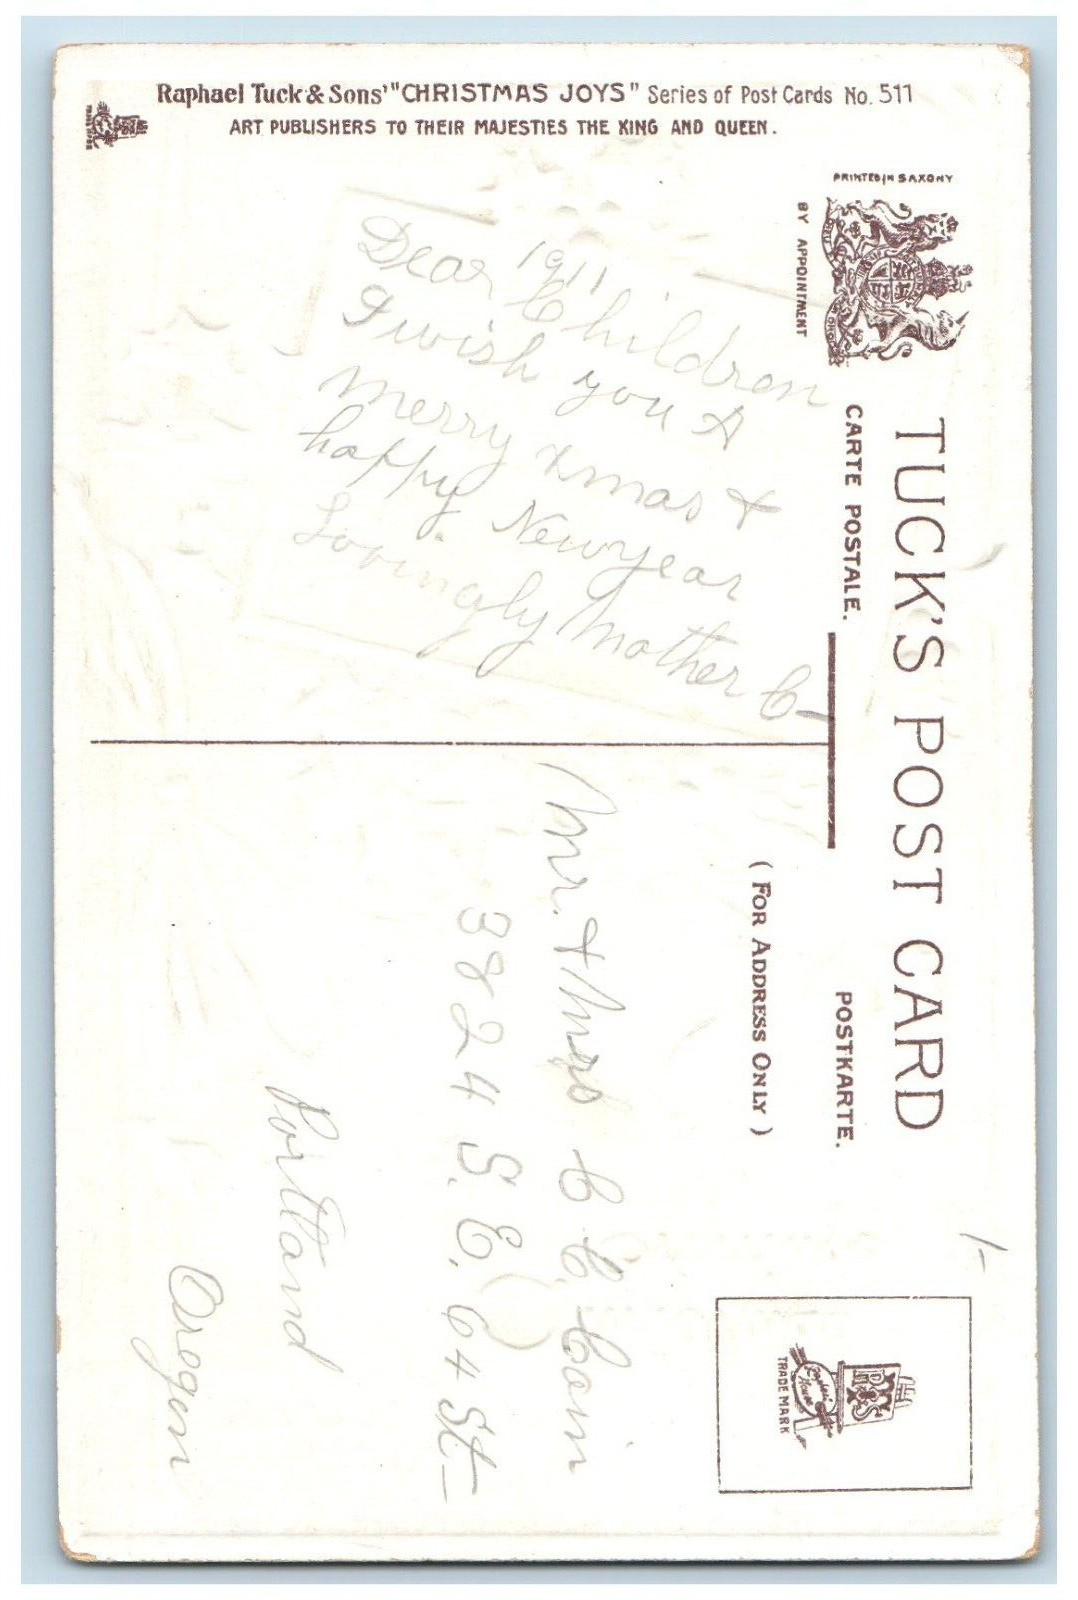 Raphael Tuck & Sons' "CHRISTMAS JOYS" Series of Post Cards No. 511
ART PUBLISHERS TO THEIR MAJESTIES THE KING AND QUEEN.
PRINTED IN SAXONY
BY APPOINTMENT
TUCK'S POST CARD
CARTE POSTALE.
POSTKARTE.
(FOR ADDRESS ONLY)
TRADE MARK
1-
1911
Dear Children
I wish you A
Merry Xmas &
happy. Newyear
Lovingly Mother C-
Mr. & Mrs C. C. Cain
3824 S. E. 64 St-
Portland
Oregon